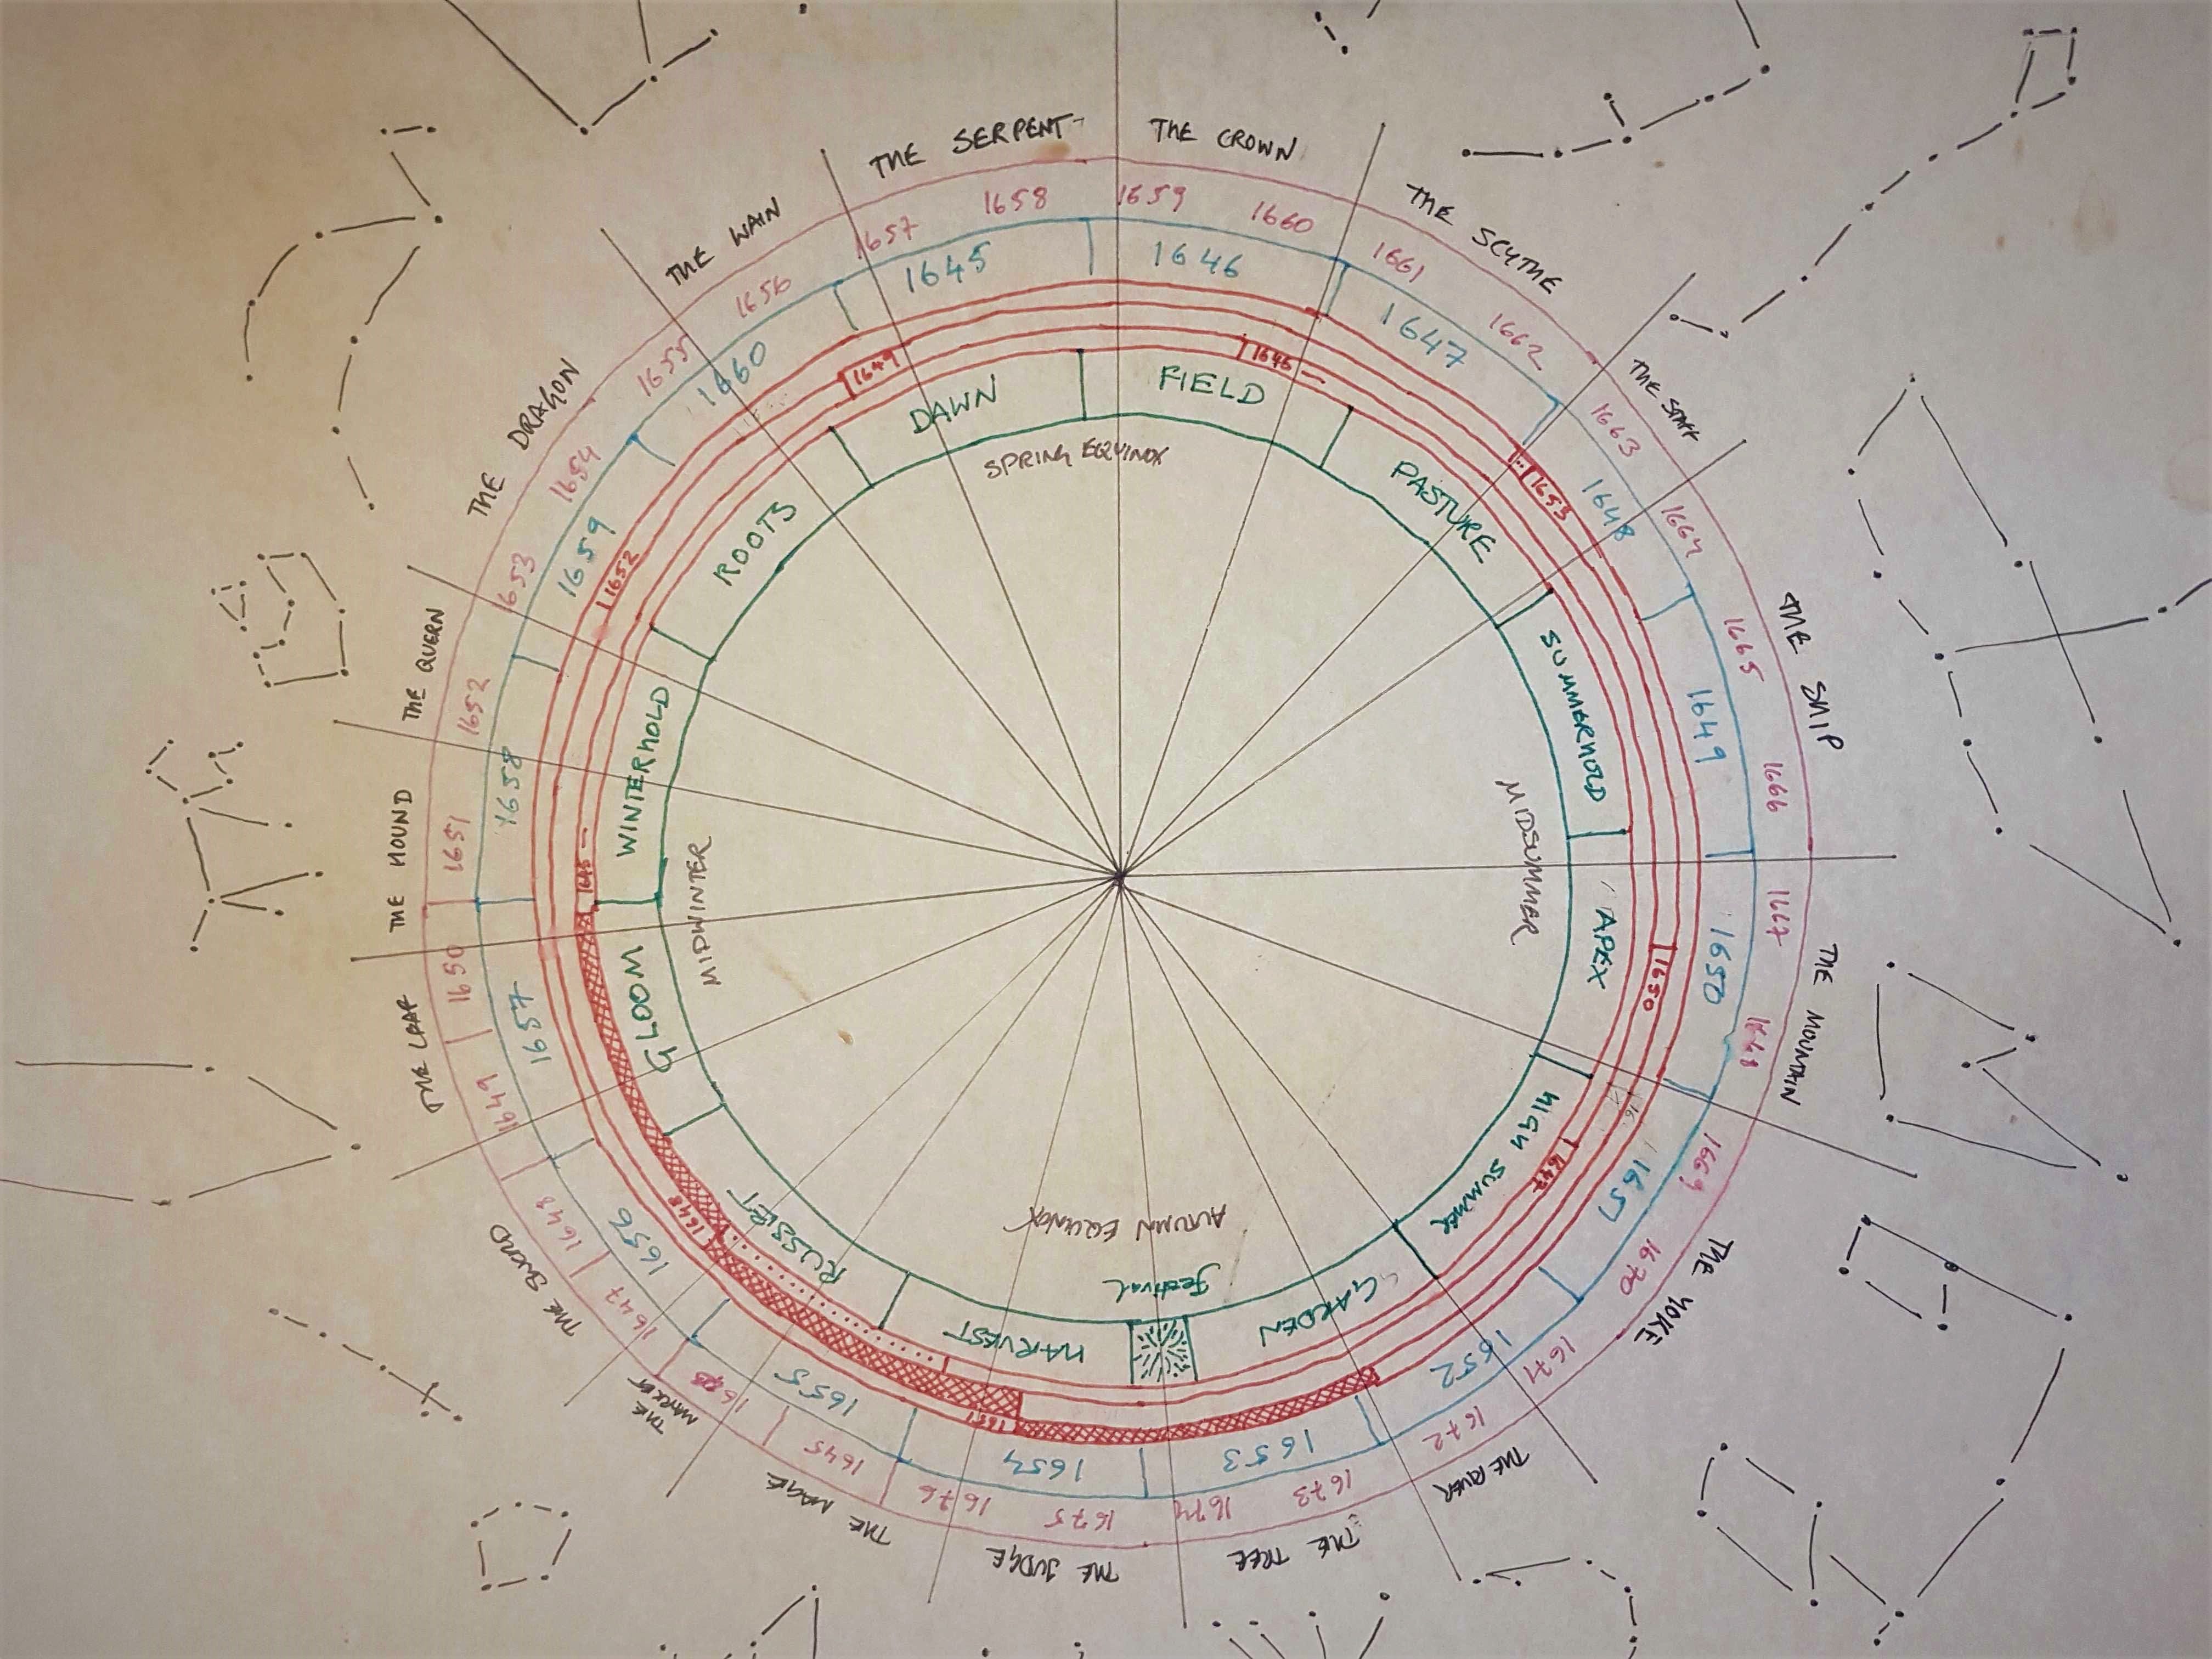 THE SERPENT
THE CROWN
THE SCYTHE
THE STAFF
THE SHIP
THE MOUNTAIN
THE YOKE
THE RIVER
THE TREE
THE JUDGE
THE MAGE
THE MARKET
THE SWORD
THE LEAP
THE HOUND
THE QUERN
THE DRAGON
THE WAIN
1657
1658
1659
1660
1661
1662
1663
1664
1665
1666
1667
1668
1669
1670
1671
1672
1673
1674
1675
1676
1645
1647
1648
1649
1650
1651
1652
1653
1654
1655
1656
1645
1646
1647
1648
1649
1650
1651
1652
1653
1654
1655
1656
1657
1658
1659
1660
1649
1646
1653
1650
1647
1651
1648
1645
1652
DAWN
FIELD
PASTURE
SUMMERHOLD
APEX
HIGH SUMMER
GARDEN
Festival
HARVEST
RUSSET
GLOOM
WINTERHOLD
ROOTS
SPRING EQUINOX
MIDSUMMER
AUTUMN EQUINOX
MIDWINTER